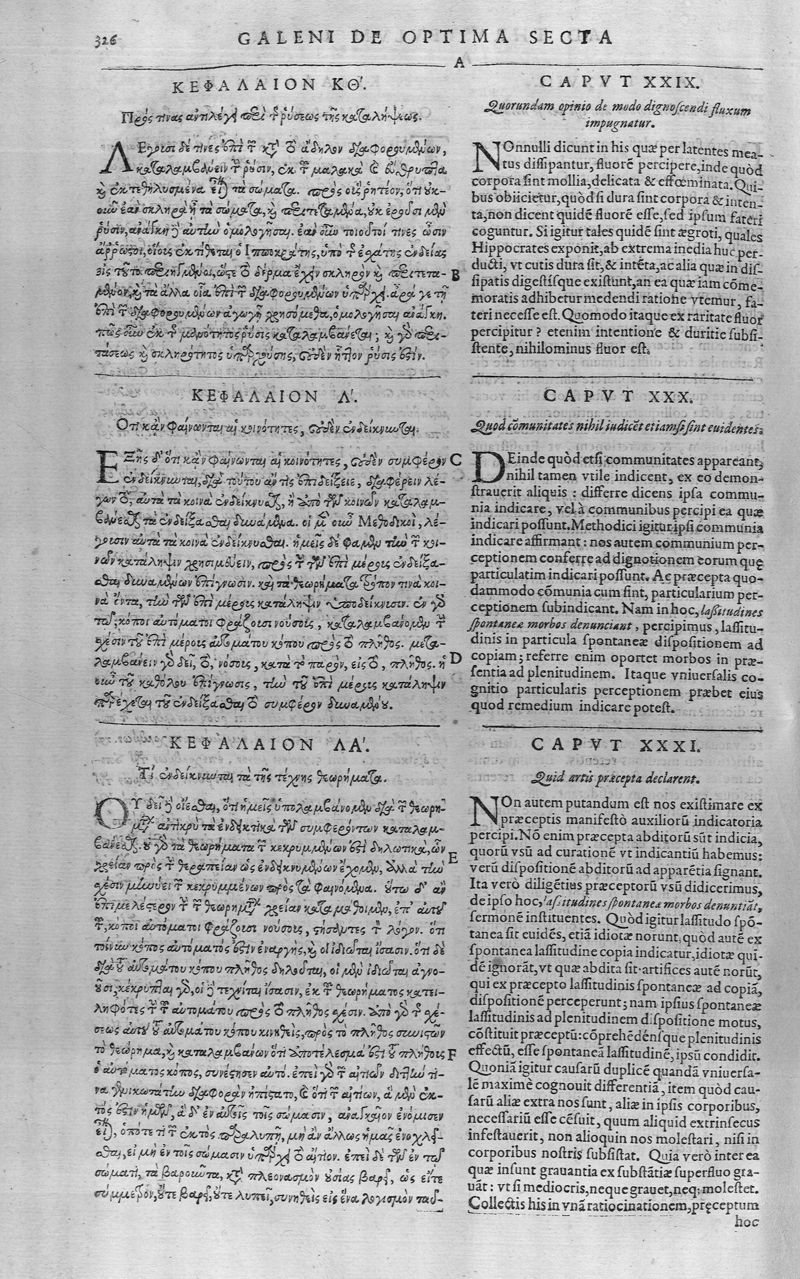 326 GALENI DE OPTIMA SECTA
A
ΚΕΦΑΛΑΙΟΝ ΚΘ'.
Πρός τινας ἀντιλέγει περὶ τῆς ῥύσεως τῆς καταλήψεως.
ΛΕγουσι δέ τινες ἐπὶ τῶν κατὰ τὸ ἄδηλον διαφορουμένων,
καταλαμβάνειν τὴν ῥύσιν, ἐκ τοῦ μαλακὰ καὶ
καὶ ἐκτεθηλυσμένα εἶναι τὰ σώματα. πρὸς οὓς ῥητέον, ὅτι οὐκ-
οῦν ἐὰν σκληρὰ ᾖ τὰ σώματα, καὶ περιτεταμένα, οὐκ ἐροῦσι μὲν
ῥύσιν, ἀνάγκη δ' αὐτὴν ὁμολογῆσαι. ἐὰν οὖν τοιοῦτοί τινες ὦσιν
ἄρρωστοι, οἵους ἐκτίθεται ὁ Ἱπποκράτης, ὑπὸ τῆς ἐσχάτης ἐνδείας
εἰς τοῦτο περιηγμένοι, ὥστε τὸ δέρμα ἔχειν σκληρὸν καὶ περιτετα-
B
μένον, καὶ τὰ ἄλλα οἷα ἐπὶ τῶν διαφορουμένων ὑπάρχει. ἆρά γε τῇ
ἐπὶ τῶν διαφορουμένων ἀγωγῇ χρησόμεθα, ὁμολογῆσαι ἀνάγκη.
πῶς οὖν ἐκ τῆς ἀραιότητος ῥύσις καταλαμβάνεται; καὶ γὰρ περι-
τάσεως καὶ σκληρότητος ὑπαρχούσης, οὐδὲν ἧττον ῥύσις ἐστίν.
ΚΕΦΑΛΑΙΟΝ Λ'.
Ὅτι κἂν φαίνωνται αἱ κοινότητες, οὐδὲν ἐνδείκνυνται.
ΕΞῆς δ' ὅτι κἂν φαίνωνται αἱ κοινότητες, οὐδὲν συμφέρον
C
ἐνδείκνυνται, διὰ τούτου ἄν τις ἐπιδείξειε, διαφέρειν λέ-
γων τὸ, αὐτὰ τὰ κοινὰ ἐνδείκνυσθαι, ἢ ἀπὸ τῶν κοινῶν καταλαμ-
βάνεσθαι τὰ ἐνδείξασθαι δυνάμενα. οἱ μὲν οὖν Μεθοδικοὶ, λέ-
γουσιν αὐτὰ τὰ κοινὰ ἐνδείκνυσθαι. ἡμεῖς δέ φαμεν τὴν τῶν κοι-
νῶν κατάληψιν χρησιμεύειν, πρὸς τὴν τῶν ἐπὶ μέρους ἐνδείξα-
σθαι δυναμένων ἐπίγνωσιν. καὶ τὰ θεωρήματα τρόπον τινὰ κοι-
νὰ ὄντα, τὴν τῶν ἐπὶ μέρους κατάληψιν ὑποδείκνυσιν. ἐν γὰρ
τῷ, κόποι αὐτόματοι φράζουσι νούσους, καταλαμβανόμεθα τὴν
σχέσιν τοῦ ἐπὶ μέρους αὐτομάτου κόπου πρὸς τὸ πλῆθος. μετα-
λαμβάνειν γὰρ δεῖ, τὸ, νόσους, κατὰ τὸ παρὸν, εἰς τὸ, πλῆθος. ἡ
D
οὖν τοῦ καθόλου ἐπίγνωσις, τὴν τοῦ ἐπὶ μέρους κατάληψιν
παρέχεται τοῦ ἐνδείξασθαι τὸ συμφέρον δυναμένου.
ΚΕΦΑΛΑΙΟΝ ΛΑ'.
Τί ἐνδείκνυνται τὰ τῆς τέχνης θεωρήματα.
ΟΥ δεῖ δ' οἴεσθαι, ὅτι ἡμεῖς ὑπολαμβάνομεν διὰ τῶν θεωρη-
μάτων ἄντικρυ τὰ ἐνδεικτικὰ τῶν συμφερόντων καταλαμ-
βάνεσθαι. οὐ γὰρ τὰ θεωρήματα τῶν κεκρυμμένων ἐστὶ δηλωτικὰ, ὧν
E
χρείαν πρὸς τὴν θεραπείαν ὡς ἐνδεικνυμένων ἔχομεν, ἀλλὰ τὴν
σχέσιν μηνύει τῶν κεκρυμμένων πρὸς τὰ φαινόμενα. οὕτω δ' ἂν
ἐπιμελέστερον τὴν τῶν θεωρημάτων χρείαν καταμάθοιμεν, ἐπ' αὐτοῦ
τοῦ, κόποι αὐτόματοι φράζουσι νούσους, ποιήσαντες τὸν λόγον. ὅτι
τοίνυν κόπος αὐτόματός ἐστιν ἐναργὴς, καὶ οἱ ἰδιῶται ἴσασιν. ὅτι δὲ
διὰ τοῦ αὐτομάτου κόπου πλῆθος δηλοῦται, οἱ μὲν ἰδιῶται ἀγνο-
οῦσι, κέκρυπται γὰρ, οἱ δὲ τεχνῖται ἴσασιν, ἐκ τοῦ θεωρήματος κατει-
ληφότες τὴν τοῦ αὐτομάτου πρὸς τὸ πλῆθος σχέσιν. ὑπὸ γὰρ τῆς σχέ-
σεως αὐτοῦ τοῦ αὐτομάτου κόπου κινηθεὶς, πρὸς τὸ πλῆθος
τὸ θεώρημα, καὶ καταλαμβάνων ὅτι ἀποτέλεσμά ἐστι τοῦ πλήθους
F
ὁ αὐτόματος κόπος, συνέστησεν αὐτό. ἐπεὶ γὰρ τῶν αἰτίων διττήν τι-
να γενικωτάτην διαφορὰν ἠπίστατο, καὶ ὅτι τῶν αἰτίων, ἃ μὲν ἐκ-
τός ἐστιν ἡμῶν, ἃ δ' ἐν αὐτοῖς τοῖς σώμασιν, ἀναγκαῖον ἐνόμισεν
εἶναι, ὁπότε τι τῶν ἐκτὸς παραλυπῇ, μὴ ἂν ἄλλως ἡμᾶς ἐνοχλεῖ-
σθαι, εἰ μὴ ἐν τοῖς σώμασιν ὑπάρχῃ τὸ αἴτιον. ἐπεὶ δὲ τῶν ἐν τῷ
σώματι, τὰ βαροῦντα, κατὰ πλεονασμὸν οὐσίας βαρεῖ, ὡς εἴγε
σύμμετρον, οὔτε βαρεῖ, οὔτε λυπεῖ, συνηθεὶς εἰς ἕνα λογισμὸν ταῦ-
CAPVT XXIX.
Quorundam opinio de modo dignoscendi fluxum
impugnatur.
NOnnulli dicunt in his quæ per latentes mea-
tus dissipantur, fluorē percipere, inde quòd
corpora sint mollia, delicata & effœminata. Qui-
bus obiicietur, quòd si dura sint corpora & inten-
ta, non dicent quidē fluorē esse, sed ipsum fateri
coguntur. Si igitur tales quidē sint ægroti, quales
Hippocrates exponit, ab extrema inedia huc per-
ducti, vt cutis dura sit, & intēta, ac alia quæ in dis-
sipatis digestisque existunt, an ea quæ iam cōme-
moratis adhibetur medendi ratione vtemur, fa-
teri necesse est. Quomodo itaque ex raritate fluor
percipitur? etenim intentione & duritie subsi-
stente, nihilominus fluor est.
CAPVT XXX.
Quod cōmunitates nihil iudicēt etiamsi sint euidentes.
DEinde quòd etsi communitates appareant,
nihil tamen vtile indicent, ex eo demon-
strauerit aliquis: differre dicens ipsa commu-
nia indicare, vel à communibus percipi ea quæ
indicari possunt. Methodici igitur ipsi communia
indicare affirmant: nos autem communium per-
ceptionem conferre ad dignotionem eorum quę
particulatim indicari possunt. Ac præcepta quo-
dammodo cōmunia cum sint, particularium per-
ceptionem subindicant. Nam in hoc, lassitudines
spontaneæ morbos denunciant, percipimus, lassitu-
dinis in particula spontaneæ dispositionem ad
copiam; referre enim oportet morbos in præ-
sentia ad plenitudinem. Itaque vniuersalis co-
gnitio particularis perceptionem præbet eius
quod remedium indicare potest.
CAPVT XXXI.
Quid artis præcepta declarent.
NOn autem putandum est nos existimare ex
præceptis manifestò auxiliorū indicatoria
percipi. Nō enim præcepta abditorū sūt indicia,
quorū vsū ad curationē vt indicantiū habemus:
verū dispositionē abditorū ad apparētia signant.
Ita verò diligētius præceptorū vsū didicerimus,
de ipso hoc, lassitudines spontaneæ morbos denuntiāt,
sermonē instituentes. Quòd igitur lassitudo spō-
tanea sit euidēs, etiā idiotæ norunt, quòd autē ex
spontanea lassitudine copia indicatur, idiotæ qui-
dē ignorāt, vt quæ abdita sit. artifices autē norūt,
qui ex præcepto lassitudinis spontaneæ ad copiā,
dispositionē perceperunt; nam ipsius spontaneæ
lassitudinis ad plenitudinem dispositione motus,
cōstituit præceptū: cōprehēdēnsque plenitudinis
effectū, esse spontaneā lassitudinē, ipsū condidit.
Quoniā igitur causarū duplicē quandā vniuersa-
lē maximè cognouit differentiā, item quòd cau-
sarū aliæ extra nos sunt, aliæ in ipsis corporibus,
necessariū esse cēsuit, quum aliquid extrinsecus
infestauerit, non alioquin nos molestari, nisi in
corporibus nostris subsistat. Quia verò inter ea
quæ insunt grauantia ex substātiæ superfluo gra-
uāt: vt si mediocris, neque grauet, neq; molestet.
Collectis his in vnā ratiocinationem, pręceptum
hoc